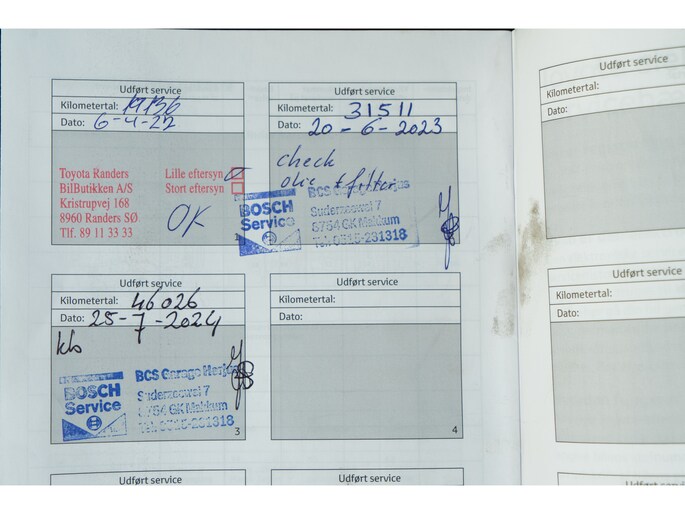 Udført service
Kilometertal: 19136
Dato: 6-4-22
Toyota Randers
BilButikken A/S
Kristrupvej 168
8960 Randers SØ
Tlf. 89 11 33 33
Lille eftersyn
Stort eftersyn
OK
1
Udført service
Kilometertal: 31511
Dato: 20-6-2023
check
olie + filter
BOSCH
Service
BCS Garage
Suderzeewei 7
8754 GK Makkum
Tel: 0515-231318
Udført service
Kilometertal: 46026
Dato: 25-7-2024
BOSCH
Service
BCS Garage
Suderzeewei 7
8754 GK Makkum
Tel: 0515-231318
3
Udført service
Kilometertal:
Dato:
4
Udført service
Udført service
Udført service
Kilometertal:
Dato:
Udført service
Kilometertal:
Dato: